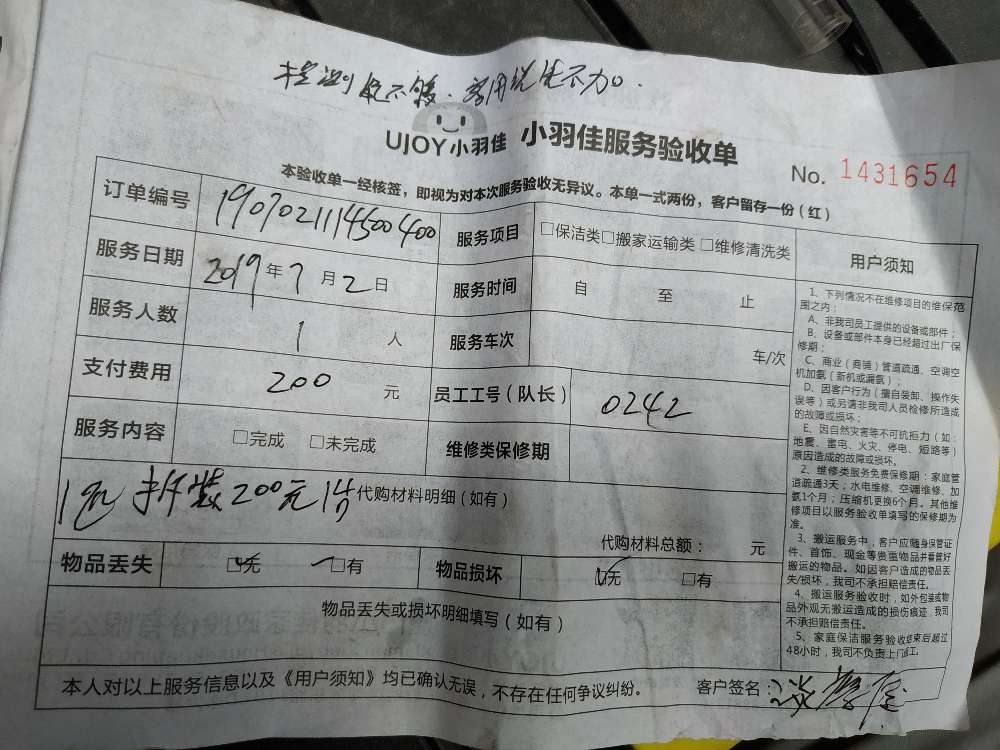 检测 不够.客用说先不加.
UJOY小羽佳 小羽佳服务验收单
No. 1431654
本验收单一经核签，即视为对本次服务验收无异议。本单一式两份，客户留存一份（红）
订单编号 190702114500400 服务项目 □保洁类□搬家运输类 □维修清洗类
服务日期 2019年7月2日 服务时间 自 至 止
服务人数 1 人 服务车次 车/次
支付费用 200 元 员工工号（队长） 0242
服务内容 □完成 □未完成 维修类保修期
拆装200元 代购材料明细（如有）
代购材料总额： 元
物品丢失 □无 □有 物品损坏 □无 □有
物品丢失或损坏明细填写（如有）
本人对以上服务信息以及《用户须知》均已确认无误，不存在任何争议纠纷。 客户签名：
用户须知
1、下列情况不在维修项目的维保范
围之内：
A、非我司员工提供的设备或部件；
B、设备或部件本身已经超过出厂保
修期；
C、商业（商铺）管道疏通、空调空
机加氨（新机或漏氨）；
D、因客户行为（擅自装卸、操作失
误等）或另请非我司人员检修所造成
的故障或损坏；
E、因自然灾害等不可抗拒力（如：
地震、雷电、火灾、停电、短路等）
原因造成的故障或损坏。
2、维修类服务免费保修期：家庭管
道疏通3天；水电维修、空调维修、加
氨1个月；压缩机更换6个月。其他维
修项目以服务验收单填写的保修期为
准。
3、搬运服务中，客户应随身保管证
件、首饰、现金等贵重物品并看管好
搬运的物品。如因客户造成的物品丢
失/损坏，我司不承担赔偿责任。
4、搬运服务验收时，如外包装或物
品外观无搬运造成的损伤痕迹，我司
不承担赔偿责任。
5、家庭保洁服务验收结束后超过
48小时，我司不负责上门返工。